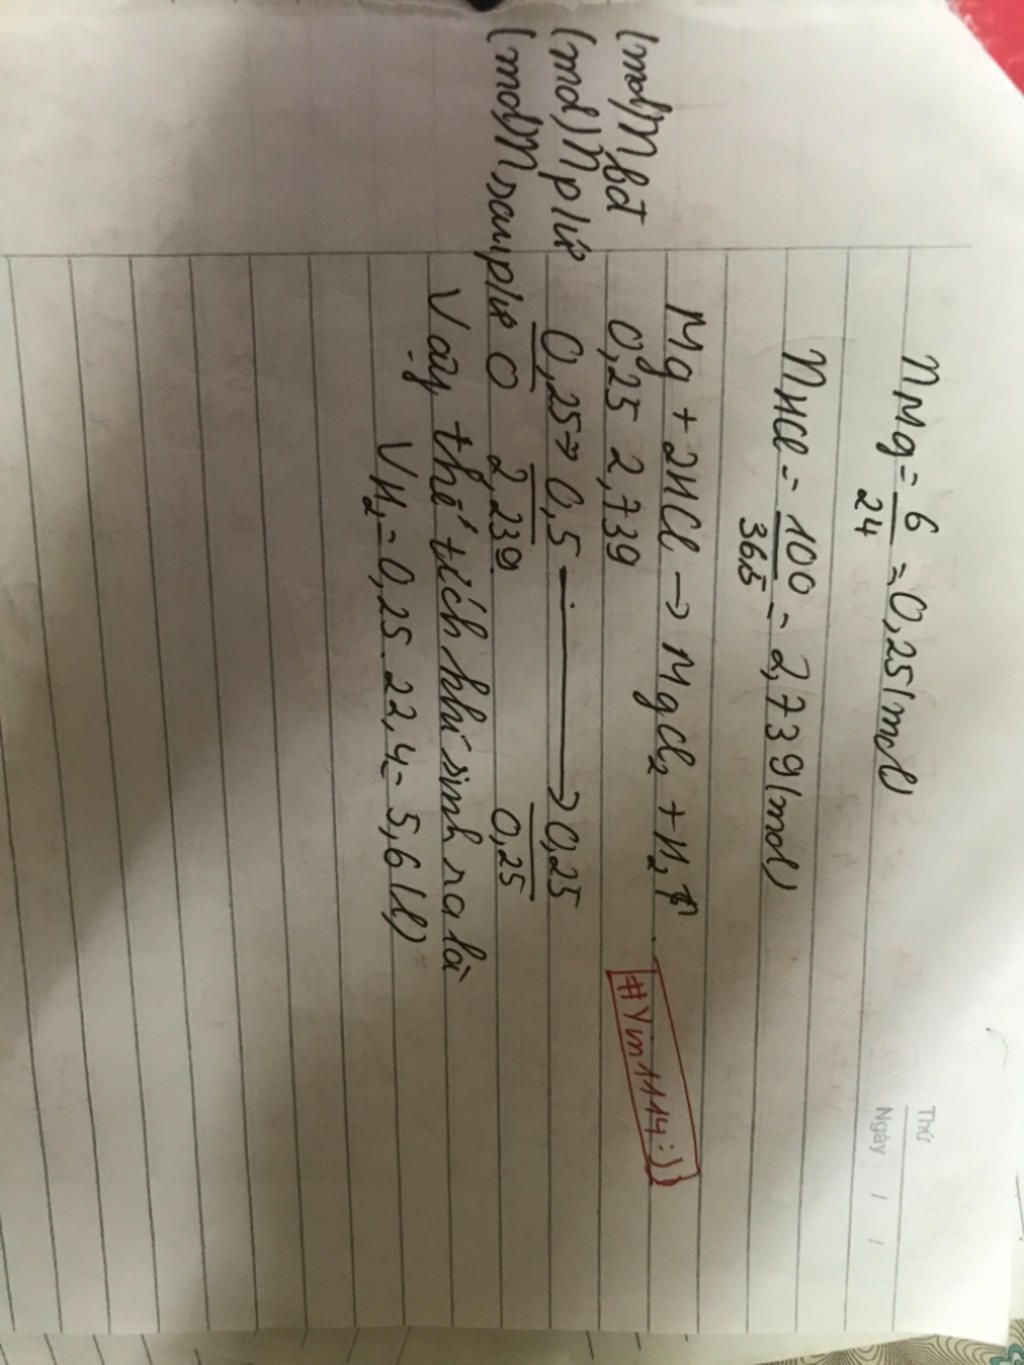 Thứ
Ngày / /
nMg = 6/24 = 0,25(mol)
nHCl = 100/36,5 = 2,739(mol)
Mg + 2HCl → MgCl₂ + H₂↑
(mol) nbđ 0,25 2,739
(mol) npứ 0,25 → 0,5 → 0,25
(mol) n sau pứ 0 2,239 0,25
Vậy thể tích khí sinh ra là
VH₂ = 0,25.22,4 = 5,6(l)
#Yin1114:))